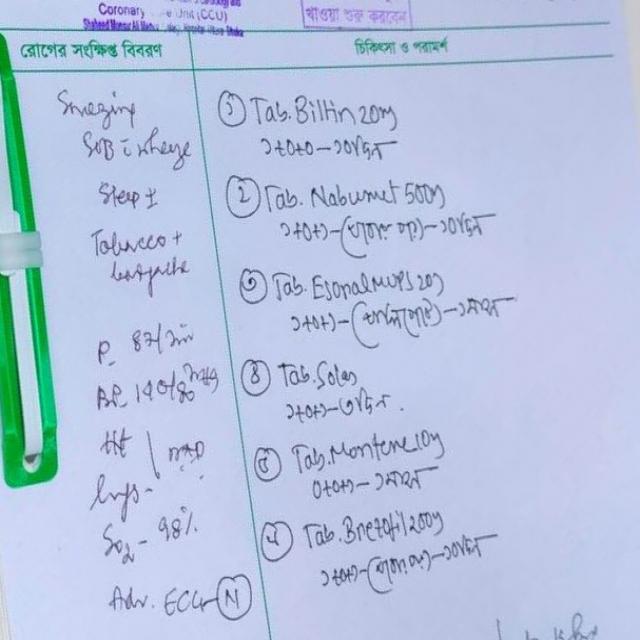 Coronary Unit (CCU)
খাওয়া শুরু করবেন
রোগের সংক্ষিপ্ত বিবরণ
চিকিৎসা ও পরামর্শ
SOB c wheeze
Sleep ±
Tobacco +
P 87/min
BP 140/80 mmHg
Ht | NAD
lungs-
SO2 - 98%
Adv. ECG - N
১ Tab. Biltin 20mg
১+০+০ - ১০দিন
২ Tab. Nabumet 500mg
১+০+১ - (খাবার পর) - ১০দিন
৩ Tab. Esonal MUPS 20mg
১+০+১ - ( ) - ১মাস
৪ Tab. Solas
১+০+১ - ৩দিন.
৫ Tab. Montene 10mg
০+০+১ - ১মাস
৬ Tab. 200mg
১+০+১ - (খাবার পর) - ১০দিন